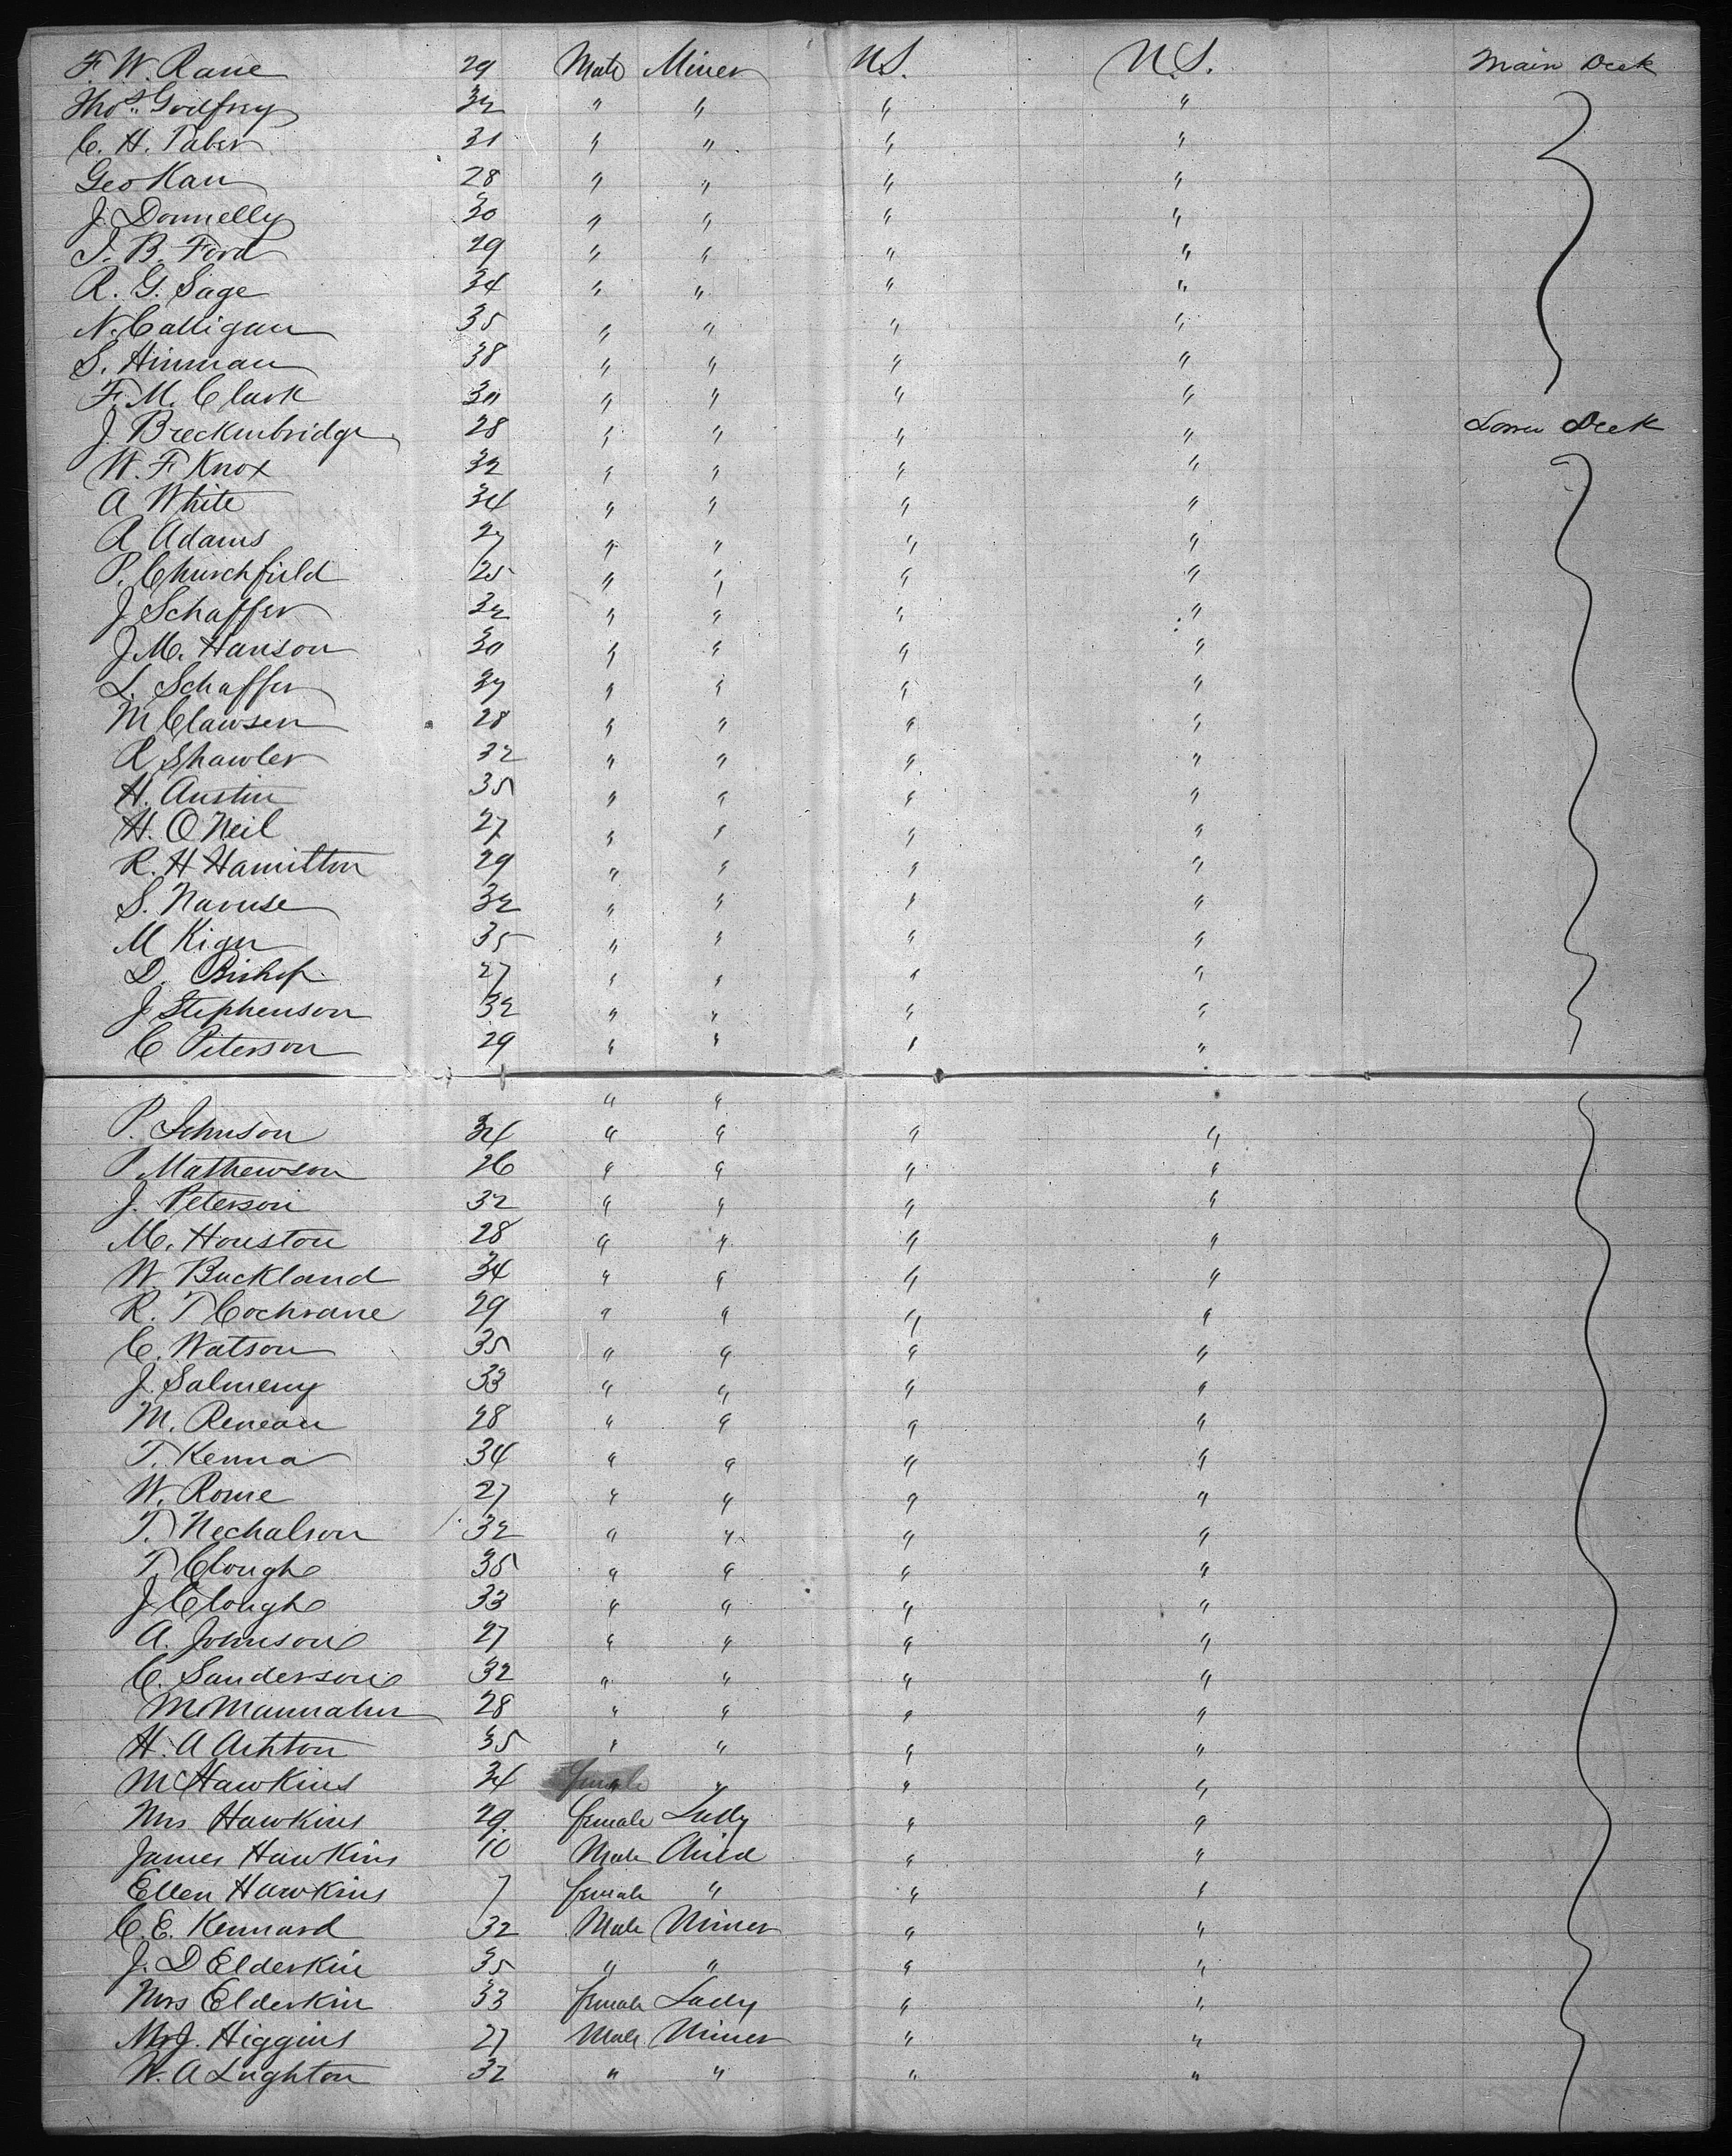 F. W. Rane 29 Male Miner U.S. U.S. Main Deck
Thos. Godfrey 32 " " " "
C. H. Taber 31 " " " "
Geo Kau 28 " " " "
J. Donnelly 30 " " " "
J. B. Ford 29 " " " "
R. G. Sage 34 " " " "
N. Calligan 35 " " " "
S. Hinman 38 " " " "
F. M. Clark 30 " " " "
J. Breckenbridge 28 " " " " Lower Deck
W. F. Knox 32 " " " "
A White 34 " " " "
R Adams 27 " " " "
P. Churchfield 25 " " " "
J Schaffer 32 " " " "
J. M. Hanson 30 " " " "
L. Schaffer 27 " " " "
M Clawsen 28 " " " "
R Shawler 32 " " " "
H. Austin 35 " " " "
H. O Neil 27 " " " "
R. H Hamilton 29 " " " "
S. Navuse 32 " " " "
M Kign 35 " " " "
D. Bishop 27 " " " "
J Stephenson 32 " " " "
C Peterson 29 " " " "
" " "
P. Johnson 34 " " " "
P Mathewson 26 " " " "
J. Peterson 32 " " " "
M. Houston 28 " " " "
W Buckland 34 " " " "
R. T Cochrane 29 " " " "
C. Watson 35 " " " "
J. Salmeny 33 " " " "
M. Reneau 28 " " " "
T. Kenna 34 " " " "
W. Rowe 27 " " " "
T. Nechalson 32 " " " "
T. Clough 35 " " " "
J Clough 33 " " " "
A. Johnson 27 " " " "
C. Sanderson 32 " " " "
M Mannahn 28 " " " "
H. A Ashton 35 " " " "
M Hawkins 34 " " " "
Mrs Hawkins 29. female Lady " "
James Hawkins 10 Male Child " "
Ellen Hawkins 7 female " " "
C. E. Kennard 32 Male Miner " "
J. D Elderkin 35 " " " "
Mrs Elderkin 33 female Lady " "
Mr J. Higgins 27 Male Miner " "
W. A Lughton 32 " " " "